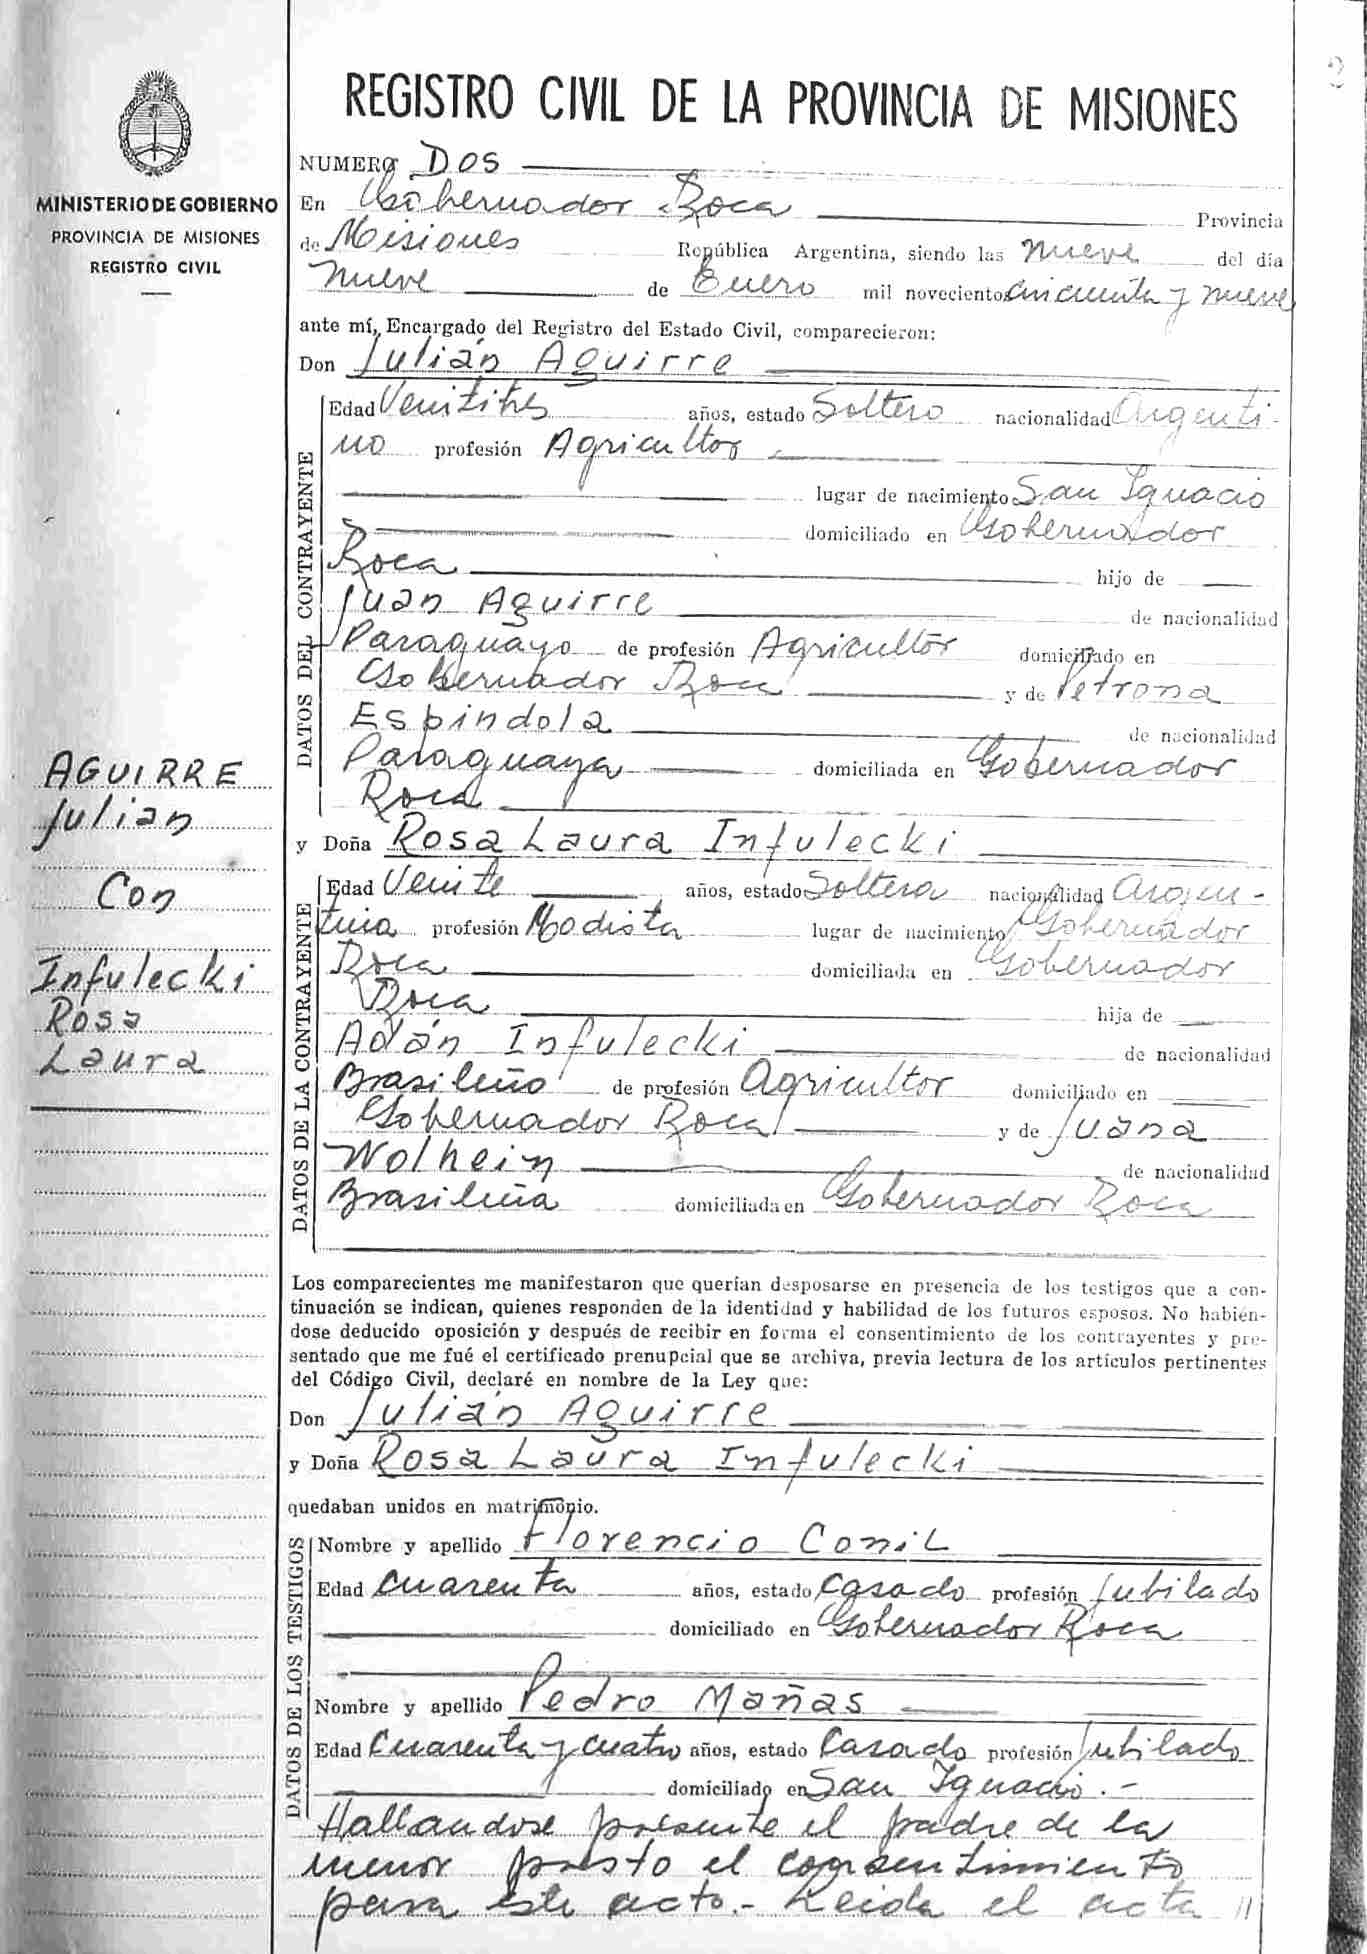 REGISTRO CIVIL DE LA PROVINCIA DE MISIONES
MINISTERIO DE GOBIERNO
PROVINCIA DE MISIONES
REGISTRO CIVIL
NUMERO Dos
En Gobernador Roca Provincia
de Misiones República Argentina, siendo las nueve del día
nueve de Enero mil novecientos cincuenta y nueve
ante mí, Encargado del Registro del Estado Civil, comparecieron:
Don Julián Aguirre
DATOS DEL CONTRAYENTE
Edad Veintitrés años, estado Soltero nacionalidad Argenti-
no profesión Agricultor
lugar de nacimiento San Ignacio
domiciliado en Gobernador
Roca hijo de
Juan Aguirre de nacionalidad
Paraguayo de profesión Agricultor domiciliado en
Gobernador Roca y de Petrona
Espindola de nacionalidad
Paraguaya domiciliada en Gobernador
Roca
AGUIRRE
Julian
Con
Infulecki
Rosa
Laura
y Doña Rosa Laura Infulecki
DATOS DE LA CONTRAYENTE
Edad Veinte años, estado Soltera nacionalidad Argen-
tina profesión Modista lugar de nacimiento Gobernador
Roca domiciliada en Gobernador
Roca hija de
Adán Infulecki de nacionalidad
Brasileño de profesión Agricultor domiciliado en
Gobernador Roca y de Juana
Wolhein de nacionalidad
Brasileña domiciliada en Gobernador Roca
Los comparecientes me manifestaron que querían desposarse en presencia de los testigos que a con-
tinuación se indican, quienes responden de la identidad y habilidad de los futuros esposos. No habién-
dose deducido oposición y después de recibir en forma el consentimiento de los contrayentes y pre-
sentado que me fué el certificado prenupcial que se archiva, previa lectura de los artículos pertinentes
del Código Civil, declaré en nombre de la Ley que:
Don Julián Aguirre
y Doña Rosa Laura Infulecki
quedaban unidos en matrimonio.
DATOS DE LOS TESTIGOS
Nombre y apellido Florencio Conil
Edad cuarenta años, estado Casado profesión Jubilado
domiciliado en Gobernador Roca
Nombre y apellido Pedro Mañas
Edad Cuarenta y cuatro años, estado Casado profesión Jubilado
domiciliado en San Ignacio.-
Hallandose presente el padre de la
menor presto el consentimiento
para este acto.- Leida el acta //